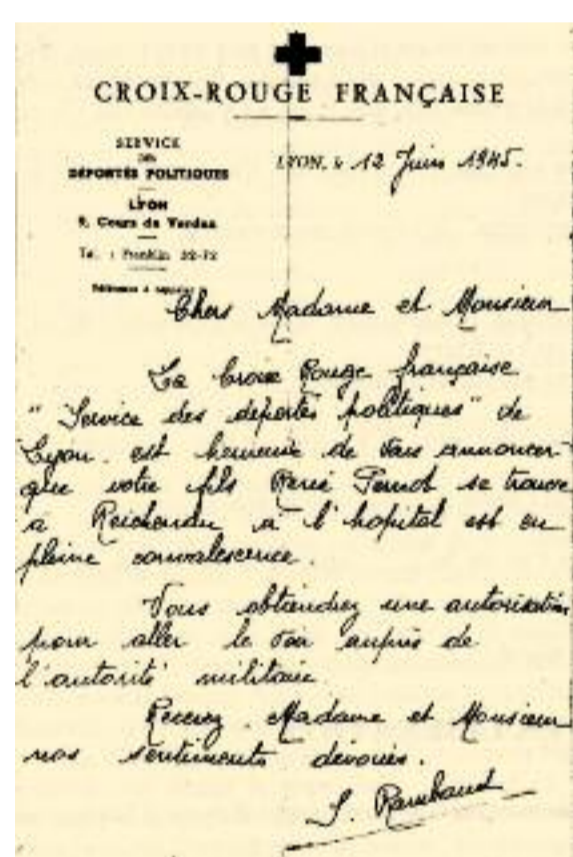 CROIX-ROUGE FRANÇAISE
SERVICE
DES
DÉPORTÉS POLITIQUES
LYON
9, Cours de Verdun
Tel. : Franklin 32-72
LYON, le 12 Juin 1945.
Chers Madame et Monsieur
La Croix Rouge française
"Service des déportés politiques" de
Lyon est heureuse de vous annoncer
que votre fils René se trouve
à à l'hopital est en
pleine convalescence.
Vous obtiendrez une autorisation
pour aller le voir auprès de
l'autorité militaire.
Recevez Madame et Monsieur
nos sentiments dévoués.
Rambaud